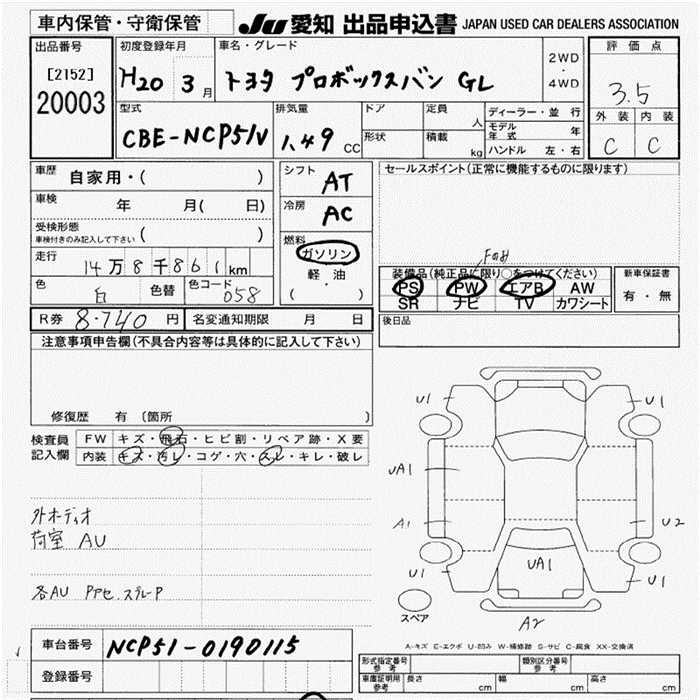 車内保管・守衛保管 JU 愛知 出品申込書 JAPAN USED CAR DEALERS ASSOCIATION
出品番号 初度登録年月 車名・グレード 評価点
[2152] H20 3月 トヨタ プロボックスバン GL 2WD・4WD 3.5
20003
型式 排気量 ドア 定員 人 ディーラー・並行 外装 内装
CBE-NCP51V 1.49 CC 形状 積載 kg モデル年式 年 C C
ハンドル 左・右
車歴 自家用・( ) シフト AT セールスポイント(正常に機能するものに限ります)
車検 年 月( 日) 冷房 AC
受検形態 ( )
車検付きのみ記入して下さい
燃料 ガソリン・軽油 ( )
走行 14万8千861km
装備品(純正品に限り○をつけてください) 新車保証書
色 白 色替 色コード 058
PS PW エアB AW 有・無
SR ナビ TV カワシート
R券 8.740円 名変通知期限 月 日 後日品
注意事項申告欄(不具合内容等は具体的に記入して下さい)
修復歴 有 (箇所 )
検査員記入欄 FW キズ・飛石・ヒビ割・リペア跡・X要
内装 キズ・汚レ・コゲ・穴・スレ・キレ・破レ
U1 U1
UA1
A1 U2
UA1
U1 U1
A2
スペア
外オーディオ
荷室 AU
各AU
A-キズ E-エクボ U-凹み W-補修跡 S-サビ C-腐食 XX-交換済
車台番号 NCP51-0190115
形式指定番号 参考 類別区分番号 参考
登録番号
車庫証明用 参考 長さ cm 幅 cm 高さ cm